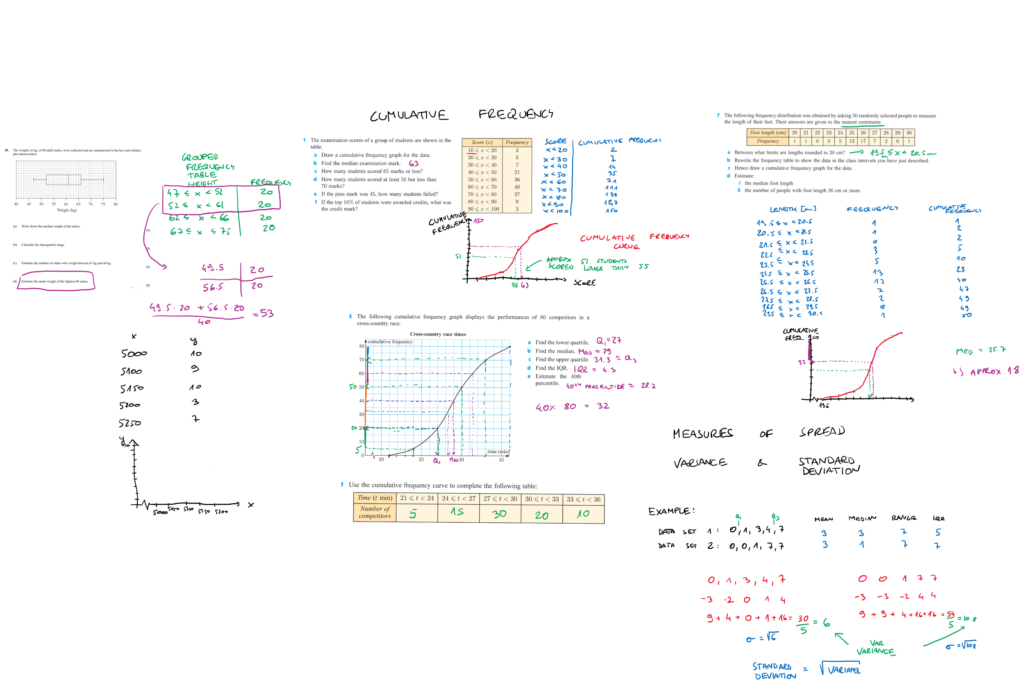 CUMULATIVE FREQUENCY
GROUPED
FREQUENCY
TABLE
WEIGHT FREQUENCY
47 ≤ x < 52 20
52 ≤ x < 61 20
62 ≤ x < 66 20
67 ≤ x ≤ 75 20
49.5 20
56.5 20
49.5·20 + 56.5·20
40
= 53
x y
5000 10
5100 9
5150 10
5200 3
5250 7
y
x
5000 5100 5150 5200
1 The examination scores of a group of students are shown in the
table.
a Draw a cumulative frequency graph for the data.
b Find the median examination mark. 63
c How many students scored 65 marks or less?
d How many students scored at least 50 but less than
70 marks?
e If the pass mark was 45, how many students failed?
f If the top 16% of students were awarded credits, what was
the credit mark?
Score (x) Frequency
10 ≤ x < 20 2
20 ≤ x < 30 5
30 ≤ x < 40 7
40 ≤ x < 50 21
50 ≤ x < 60 36
60 ≤ x < 70 40
70 ≤ x < 80 27
80 ≤ x < 90 9
90 ≤ x < 100 3
SCORE CUMULATIVE FREQUENCY
x < 20 2
x < 30 7
x < 40 14
x < 50 35
x < 60 71
x < 70 111
x < 80 138
x < 90 147
x < 100 150
CUMULATIVE
FREQUENCY
150
51
55 63
SCORE
CUMULATIVE FREQUENCY
CURVE
APPROX 51 STUDENTS
SCORED LOWER THAN 55
5 The following cumulative frequency graph displays the performances of 80 competitors in a
cross-country race.
Cross-country race times
cumulative frequency
80
70
60
50
40
30
20
10
20 25 30 35
time (min)
Q1 MED
a Find the lower quartile. Q1 = 27
b Find the median. MED = 29
c Find the upper quartile. 31.3 = Q3
d Find the IQR. IQR = 4.3
e Estimate the 40th
percentile. 40TH PERCENTILE = 28.2
40% 80 = 32
f Use the cumulative frequency curve to complete the following table:
Time (t min) 21 ≤ t < 24 24 ≤ t < 27 27 ≤ t < 30 30 ≤ t < 33 33 ≤ t < 36
Number of
competitors 5 15 30 20 10
7 The following frequency distribution was obtained by asking 50 randomly selected people to measure
the length of their feet. Their answers are given to the nearest centimetre.
Foot length (cm) 20 21 22 23 24 25 26 27 28 29 30
Frequency 1 1 0 3 5 13 17 7 2 0 1
a Between what limits are lengths rounded to 20 cm? → 19.5 ≤ x < 20.5 cm
b Rewrite the frequency table to show the data in the class intervals you have just described.
c Hence draw a cumulative frequency graph for the data.
d Estimate:
i the median foot length
ii the number of people with foot length 26 cm or more.
LENGTH [cm] FREQUENCY CUMULATIVE
FREQUENCY
19.5 ≤ x < 20.5 1 1
1 2
0 2
3 5
5 10
13 23
17 40
7 47
2 49
0 49
1 50
CUMULATIVE
FREQ.
19.5
MED = 25.7
APPROX 18
MEASURES OF SPREAD
VARIANCE & STANDARD
DEVIATION
EXAMPLE:
Q1 Q3
MEAN MEDIAN RANGE IQR
DATA SET 1: 0, 1, 3, 4, 7 3 3 7 5
DATA SET 2: 0, 0, 1, 7, 7 3 1 7 7
0, 1, 3, 4, 7
-3 -2 0 1 4
9 + 4 + 0 + 1 + 16 = 30
5
= 6
σ = √6
0 0 1 7 7
-3 -3 -2 4 4
9 + 9 + 4 + 16 + 16 = 54
5
= 10.8
σ = √10.8
VAR
VARIANCE
STANDARD
DEVIATION = √VARIANCE